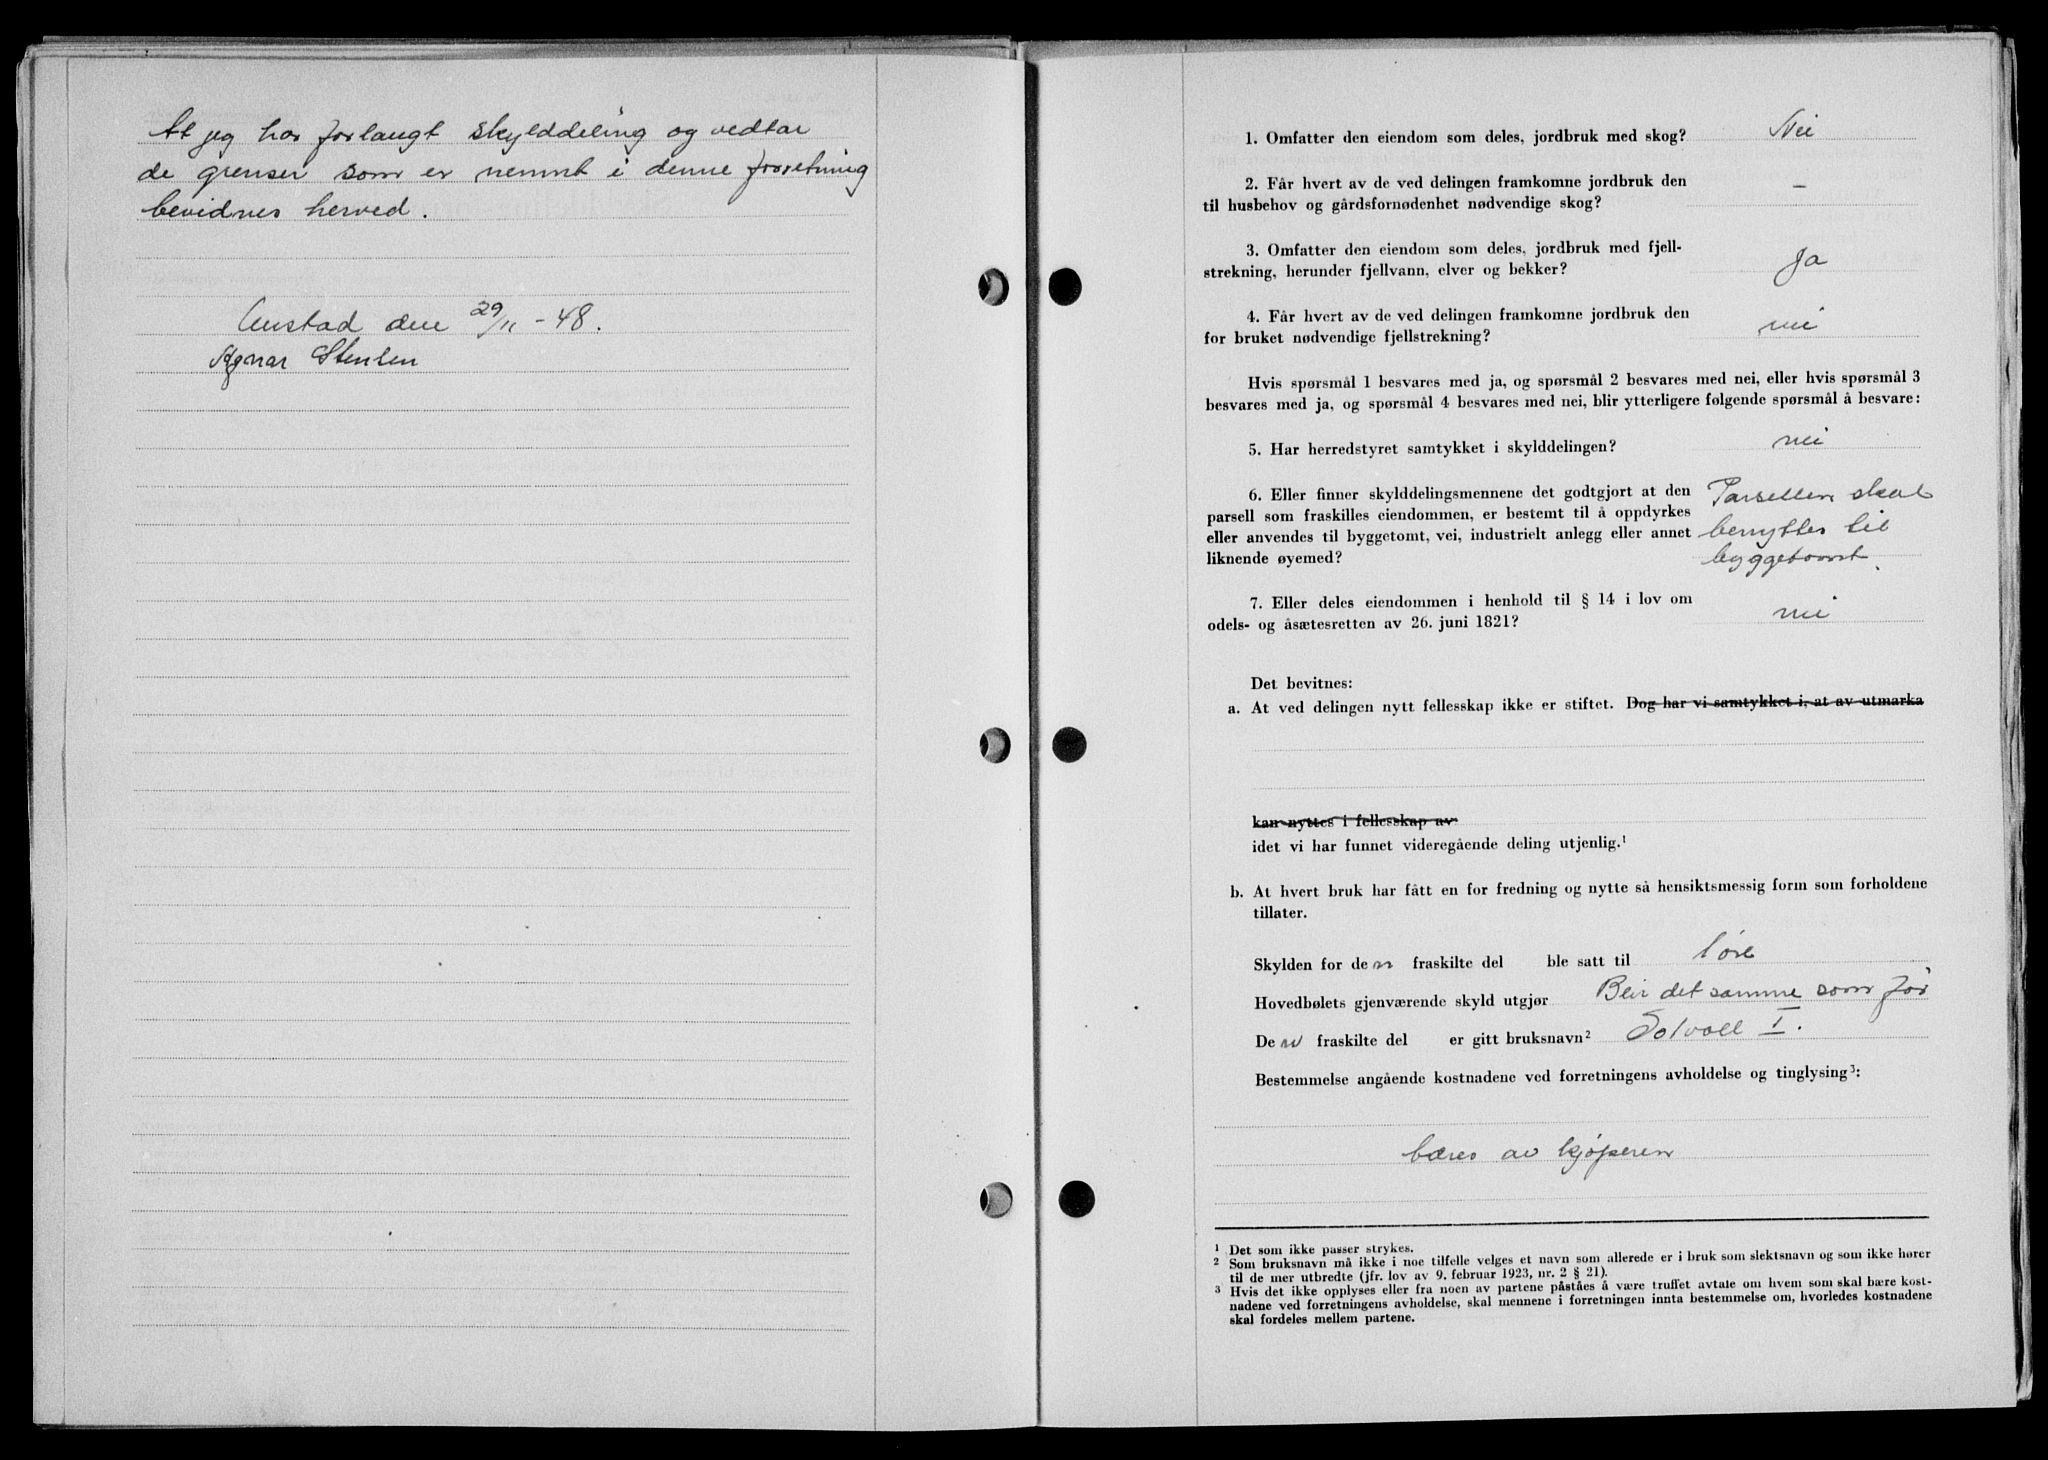 At jeg har forlangt skylddeling og vedtar
de grenser som er nemnt i denne forretning
bevidnes herved.
Anstad den 29/11 - 48.
Agnar Stensen
1. Omfatter den eiendom som deles, jordbruk med skog? Nei
2. Får hvert av de ved delingen framkomne jordbruk den
til husbehov og gårdsfornødenhet nødvendige skog? –
3. Omfatter den eiendom som deles, jordbruk med fjell-
strekning, herunder fjellvann, elver og bekker? Ja
4. Får hvert av de ved delingen framkomne jordbruk den
for bruket nødvendige fjellstrekning? nei
Hvis spørsmål 1 besvares med ja, og spørsmål 2 besvares med nei, eller hvis spørsmål 3
besvares med ja, og spørsmål 4 besvares med nei, blir ytterligere følgende spørsmål å besvare:
5. Har herredstyret samtykket i skylddelingen? nei
6. Eller finner skylddelingsmennene det godtgjort at den Parsellen skal
parsell som fraskilles eiendommen, er bestemt til å oppdyrkes
eller anvendes til byggetomt, vei, industrielt anlegg eller annet benyttes til
liknende øyemed? byggetomt.
7. Eller deles eiendommen i henhold til § 14 i lov om
odels- og åsætesretten av 26. juni 1821? nei
Det bevitnes:
a. At ved delingen nytt fellesskap ikke er stiftet. Dog har vi samtykket i, at av utmarka
kan nyttes i fellesskap av
idet vi har funnet videregående deling utjenlig.¹
b. At hvert bruk har fått en for fredning og nytte så hensiktsmessig form som forholdene
tillater.
Skylden for den fraskilte del ble satt til 1 øre
Hovedbølets gjenværende skyld utgjør Blir det samme som før
Den fraskilte del er gitt bruksnavn² Solvoll I.
Bestemmelse angående kostnadene ved forretningens avholdelse og tinglysing³:
bæres av kjøperen
¹ Det som ikke passer strykes.
² Som bruksnavn må ikke i noe tilfelle velges et navn som allerede er i bruk som slektsnavn og som ikke hører
til de mer utbredte (jfr. lov av 9. februar 1923, nr. 2 § 21).
³ Hvis det ikke opplyses eller fra noen av partene påståes å være truffet avtale om hvem som skal bære kost-
nadene ved forretningens avholdelse, skal mennene i forretningen innta bestemmelse om, hvorledes kostnadene
skal fordeles mellem partene.